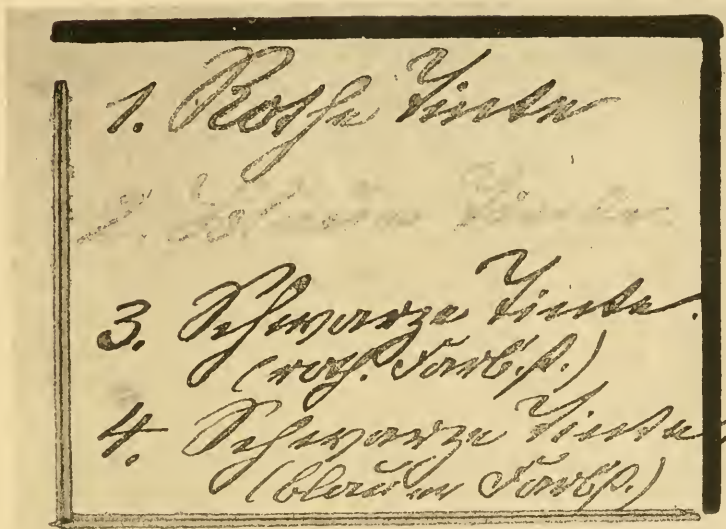 1. Rothe Tinte
2. Tinte
3. Schwarze Tinte.
(roth. Farbst.)
4. Schwarze Tinte
(blauer Farbst.)